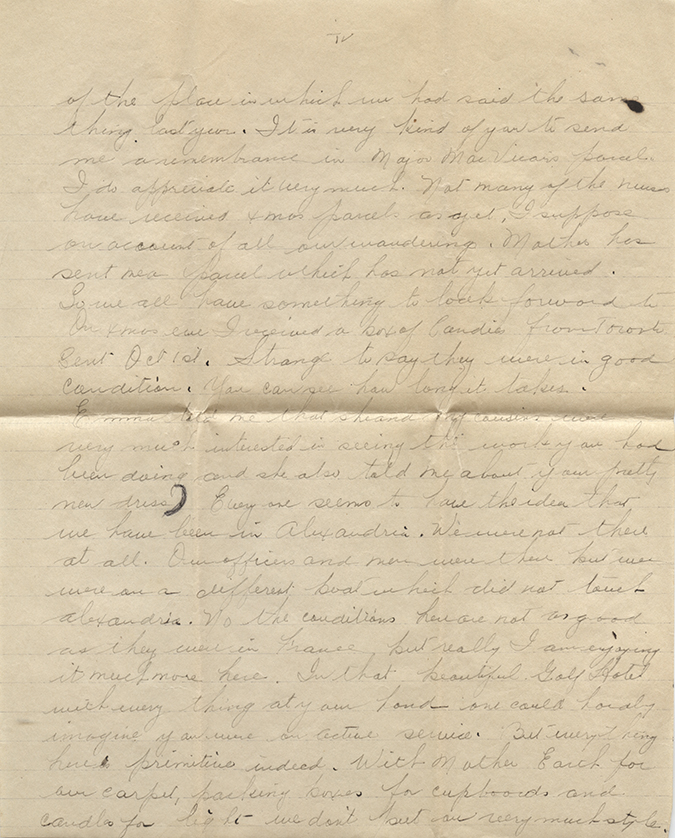 IV
of the place in which we had said the same
thing last year. It is very kind of you to send
me a remembrance in Major MacVicars parcel.
I do appreciate it very much. Not many of the nurses
have received Xmas parcels as yet, I suppose
on account of all our wandering. Mother has
sent me a parcel which has not yet arrived.
So we all have something to look forward to
On Xmas eve I received a box of Candies from Toronto
sent Oct 1st. Strange to say they were in good
condition. You can see how long it takes.
Emma told me that she and my cousins were
very much interested in seeing the work you had
been doing and she also told me about your pretty
new dress) Every one seems to have the idea that
we have been in Alexandria. We were not there
at all. Our officers and men were there but we
were on a different boat which did not touch
Alexandria. No the conditions here are not as good
as they were in France but really I am enjoying
it much more here. In that beautiful Golf Hotel
with every thing at your hand one could hardly
imagine you were on active service. But everything
here is primitive indeed. With Mother Earth for
our carpet, packing boxes for cupboards and
candles for light we don't put on very much style.